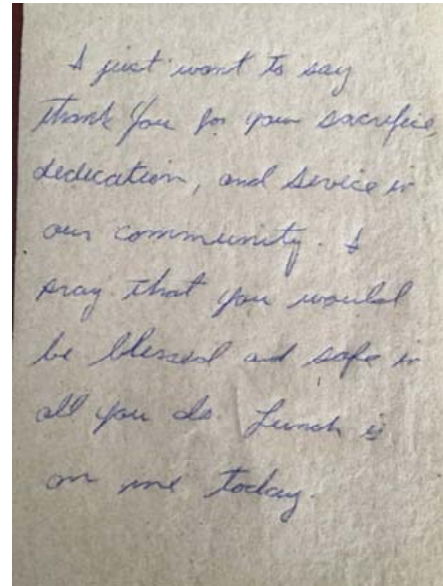 I just want to say
thank you for your sacrifice,
dedication, and sevice in
our community. I
pray that you would
be blessed and safe in
all you do. Lunch is
on me today.